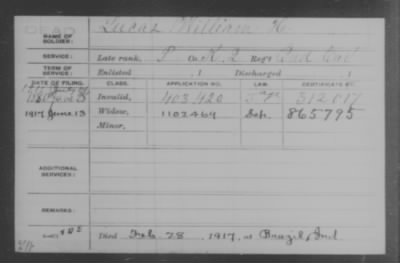 NAME OF SOLDIER: Lucas William H.
SERVICE: Late rank, P Co. K, 2 Reg't Ind Cav
TERM OF SERVICE: Enlisted , 1 Discharged , 1
DATE OF FILING. CLASS. APPLICATION NO. LAW. CERTIFICATE NO.
Invalid, 403.420 312.017
1917 June 13 Widow, 1102469 Sep. 865795
Minor,
ADDITIONAL SERVICES:
REMARKS:
Died Feb 28, 1917, at Brazil, Ind